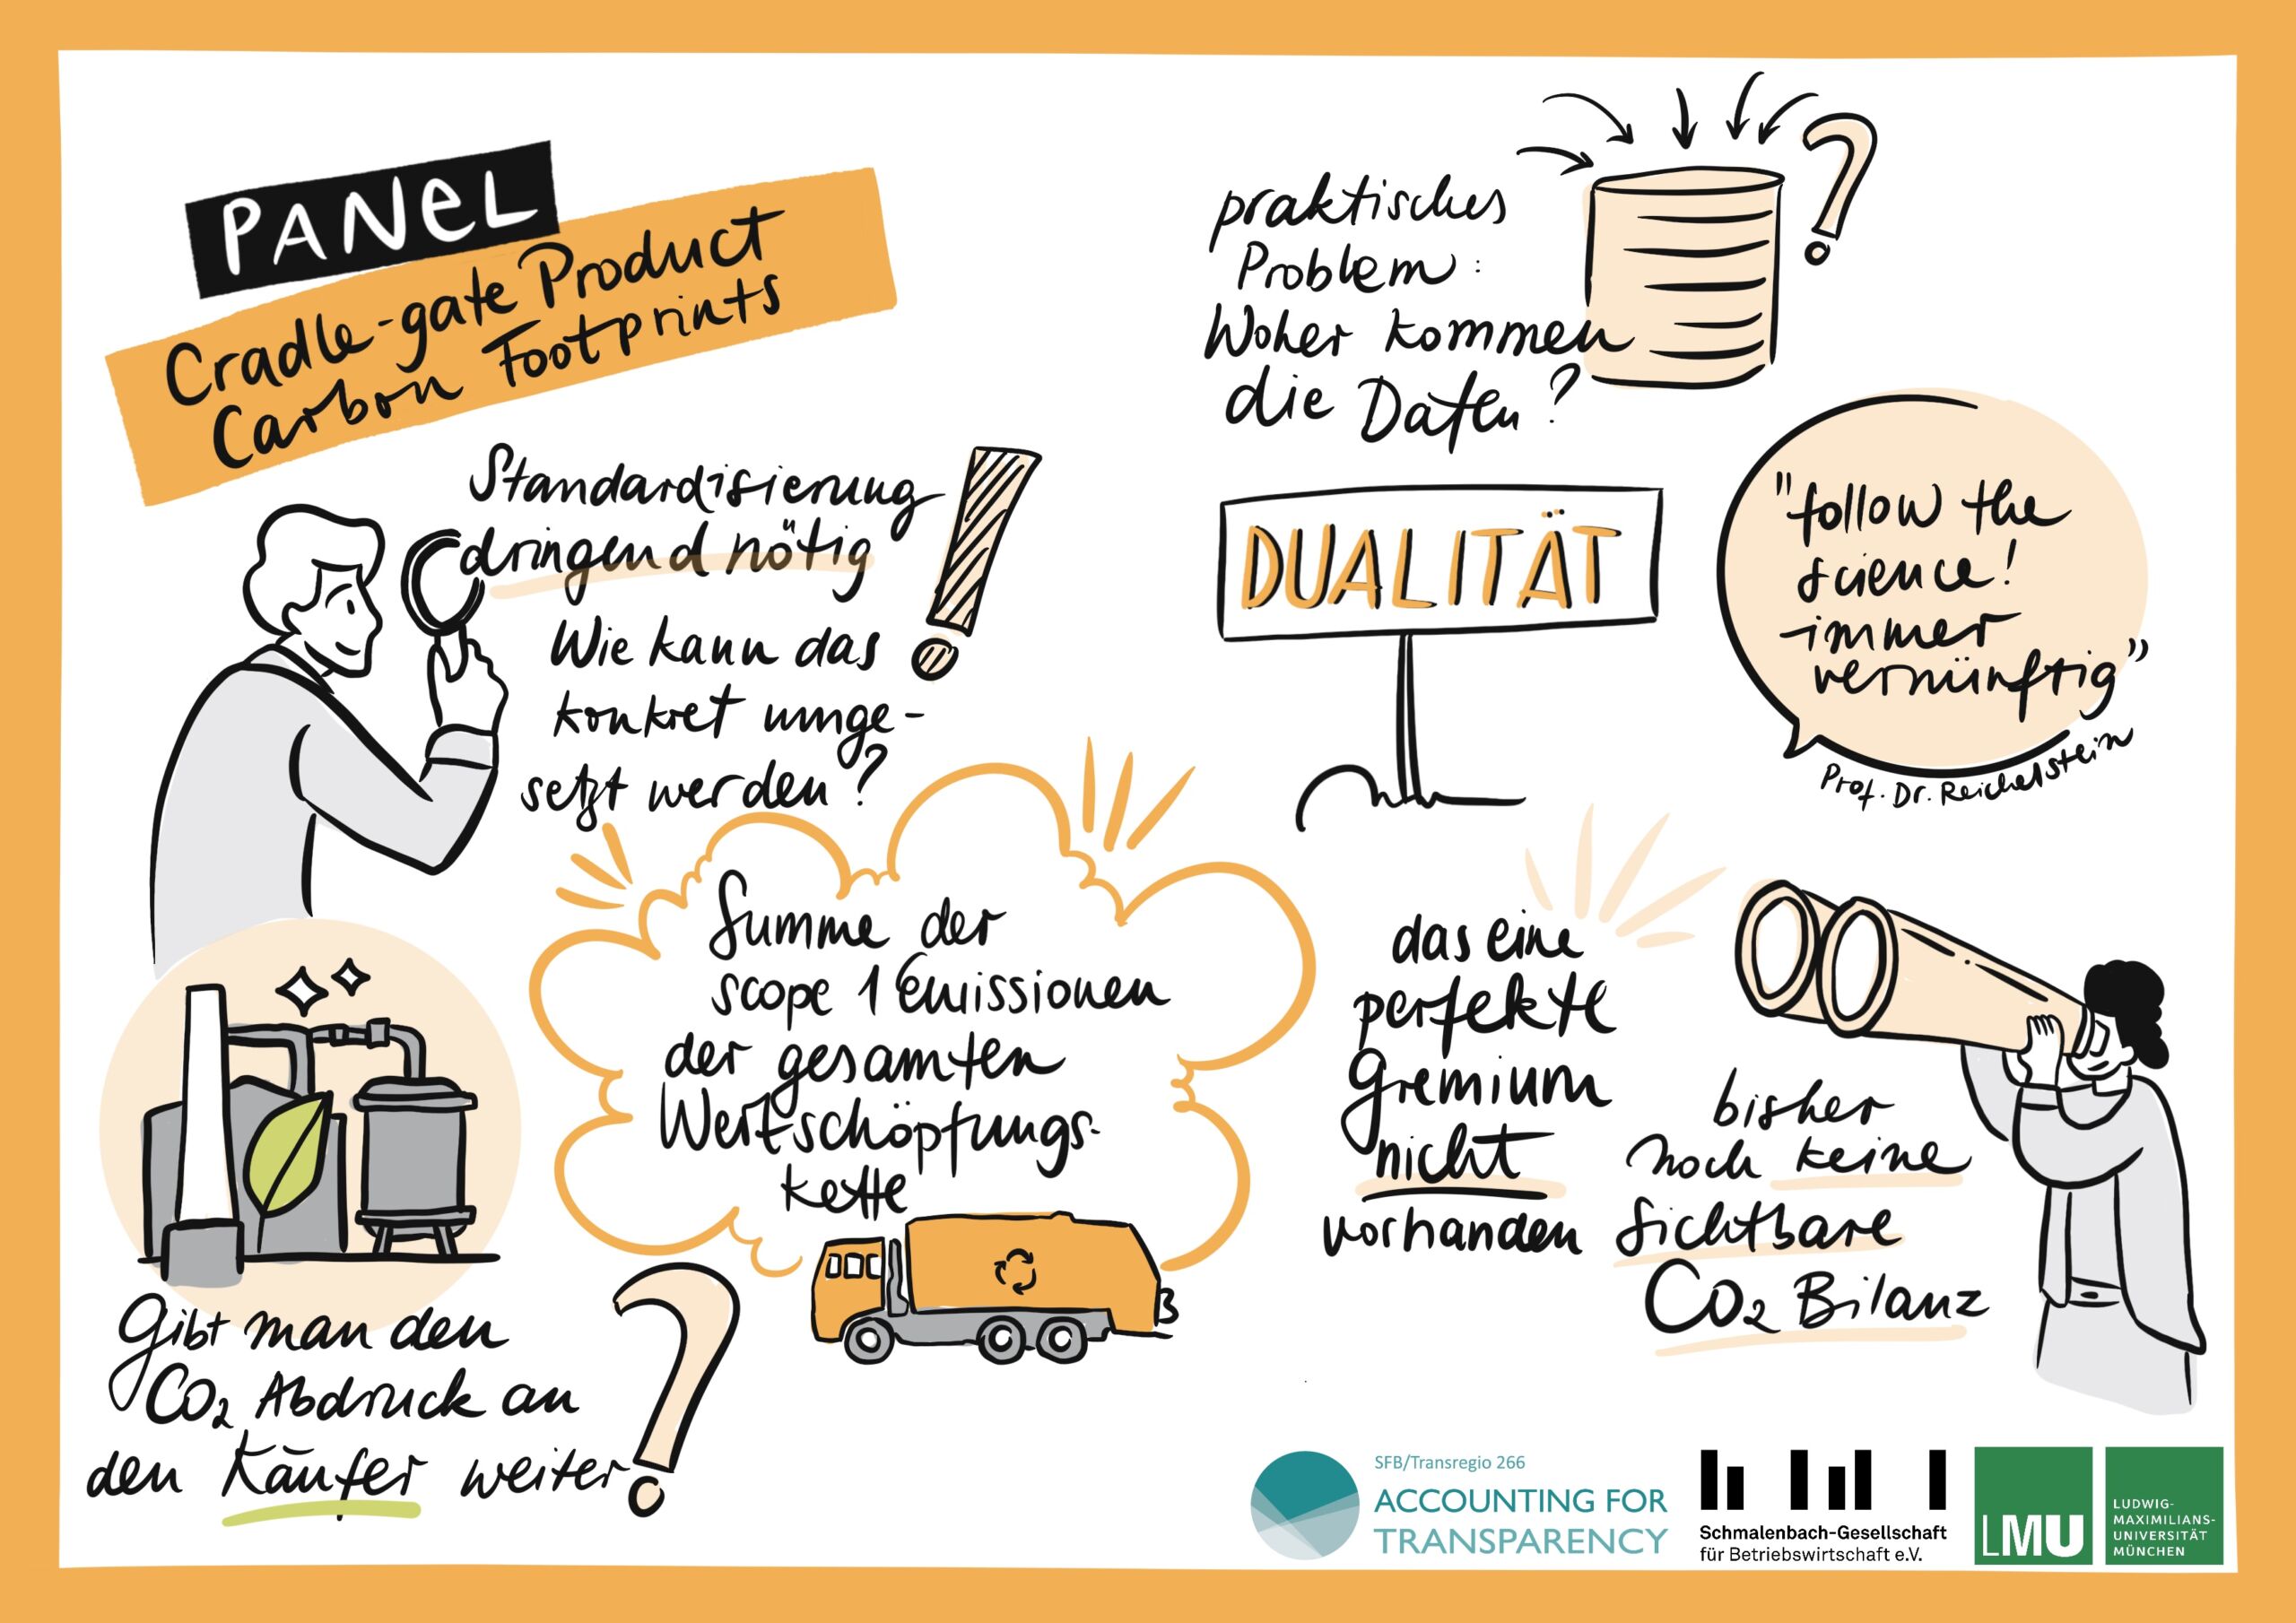 PANEL
Cradle-gate Product
Carbon Footprints
Standardisierung
dringend nötig
Wie kann das
konkret umge-
setzt werden?
praktisches
Problem:
Woher kommen
die Daten?
DUALITÄT
"follow the
science!
immer
vernünftig"
Prof. Dr. Reichelstein
Summe der
scope 1 Emissionen
der gesamten
Wertschöpfungs-
kette
das eine
perfekte
Gremium
nicht
vorhanden
bisher
noch keine
sichtbare
CO₂ Bilanz
Gibt man den
CO₂ Abdruck an
den Käufer weiter?
SFB/Transregio 266
ACCOUNTING FOR
TRANSPARENCY
Schmalenbach-Gesellschaft
für Betriebswirtschaft e.V.
LMU
LUDWIG-
MAXIMILIANS-
UNIVERSITÄT
MÜNCHEN